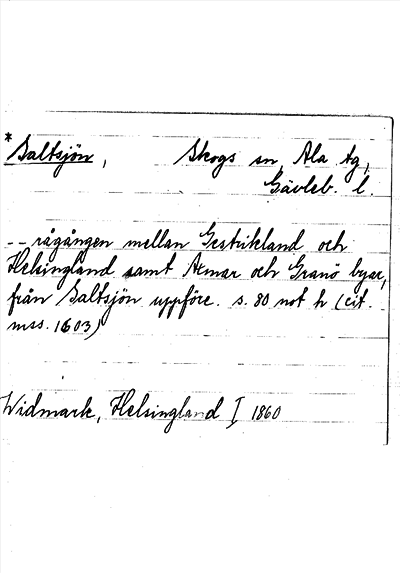 * Saltsjön, Skogs sn, Ala tg,
Gävleb. l.
-- rågången mellan Gestrikland och
Helsingland samt Armar och Granö byar,
från Saltsjön uppföre. s. 80 not h (cit.
mss. 1603)
Widmark, Helsingland I 1860